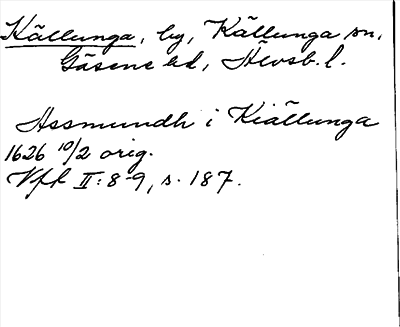 Källunga, by, Källunga sn,
Gäsene hd, Älvsb. l.
Assmundh i Kiällunga
1626 10/2 orig.
Vfk II: 8-9, s. 187.